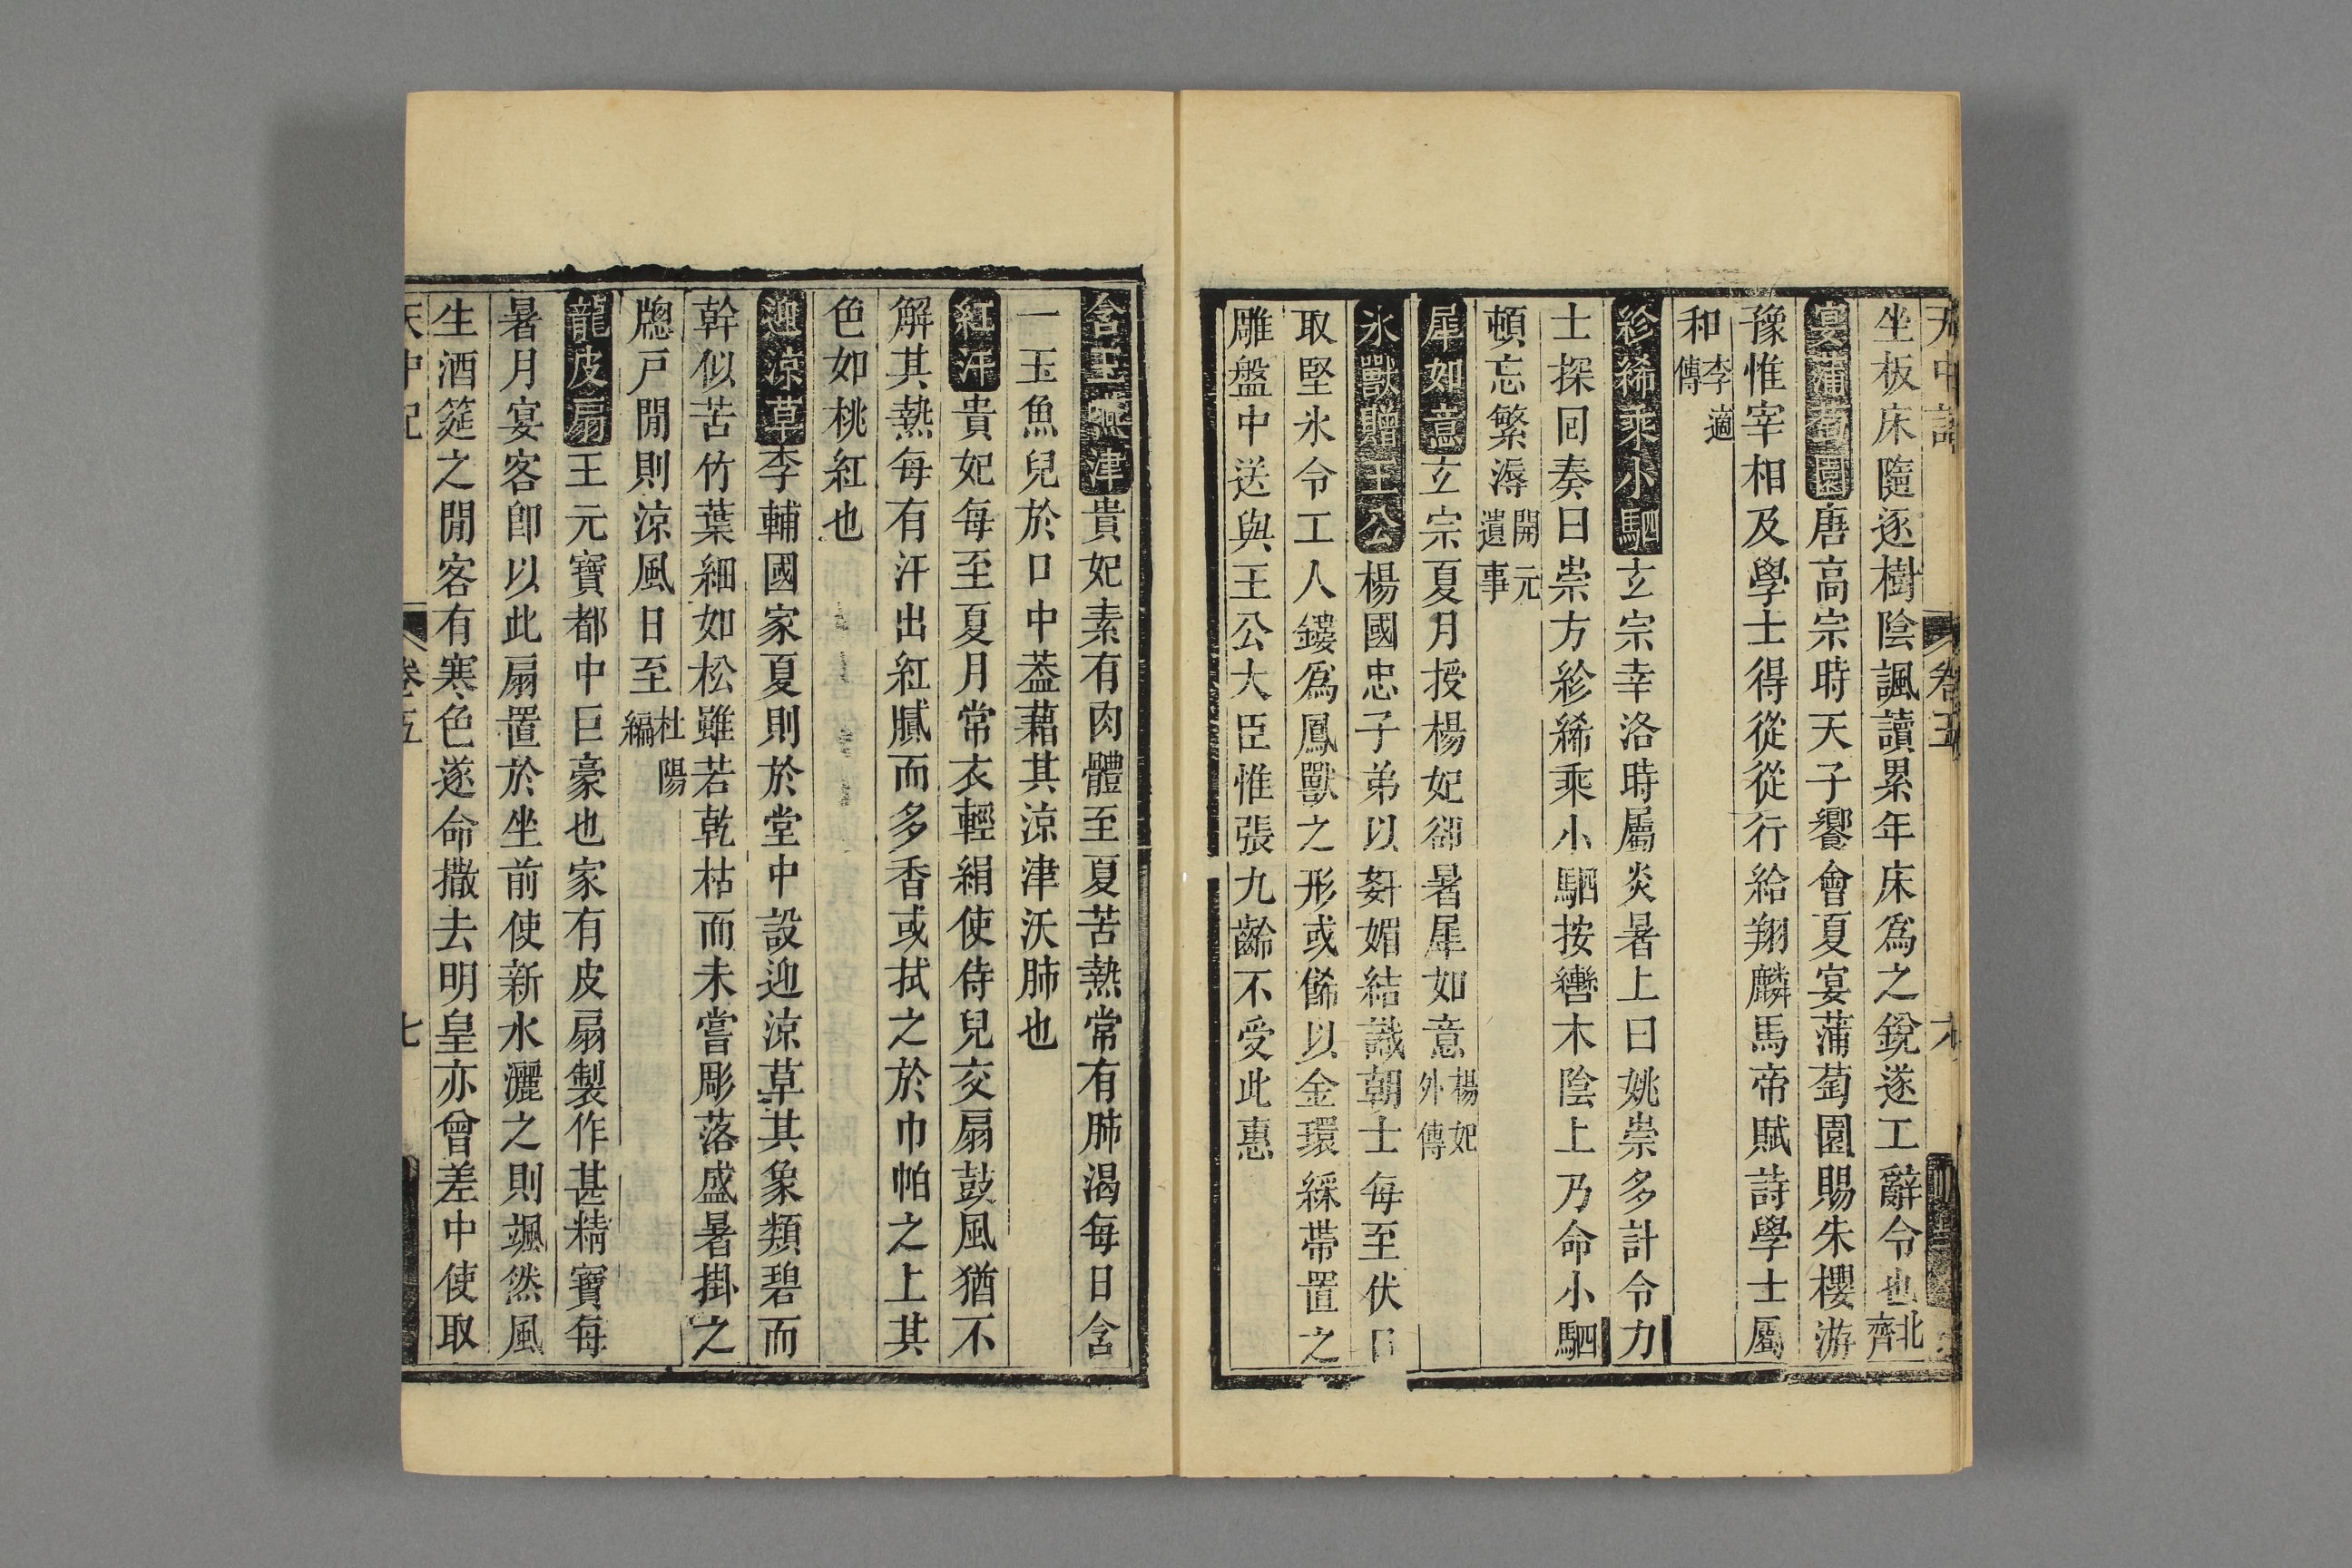 天中記 卷五 六
坐板床隨逐樹陰諷讀累年床爲之銳遂工辭令也北齊
宴蒲萄園唐高宗時天子饗會夏宴蒲萄園賜朱櫻游
豫惟宰相及學士得從從行給翔麟馬帝賦詩學士屬
和李適傳
紾絺乘小駟玄宗幸洛時屬炎暑上曰姚崇多計令力
士探回奏曰崇方紾絺乘小駟按轡木陰上乃命小駟
頓忘繁溽開元遺事
犀如意玄宗夏月授楊妃卻暑犀如意楊妃外傳
氷獸贈王公楊國忠子弟以姧媚結識朝士每至伏日
取堅氷令工人鏤爲鳳獸之形或餙以金環綵帶置之
雕盤中送與王公大臣惟張九齡不受此惠
含玉嚥津貴妃素有肉體至夏苦熱常有肺渴每日含
一玉魚兒於口中葢藉其涼津沃肺也
紅汗貴妃每至夏月常衣輕絹使侍兒交扇鼓風猶不
解其熱每有汗出紅膩而多香或拭之於巾帕之上其
色如桃紅也
迎凉草李輔國家夏則於堂中設迎涼草其象類碧而
幹似苦竹葉細如松雖若乾枯而未嘗彫落盛暑掛之
牎戸閒則涼風日至杜陽編
龍皮扇王元寶都中巨豪也家有皮扇製作甚精寶每
暑月宴客卽以此扇置於坐前使新水灑之則颯然風
生酒筵之閒客有寒色遂命撒去明皇亦曾差中使取
天中記 卷五 七